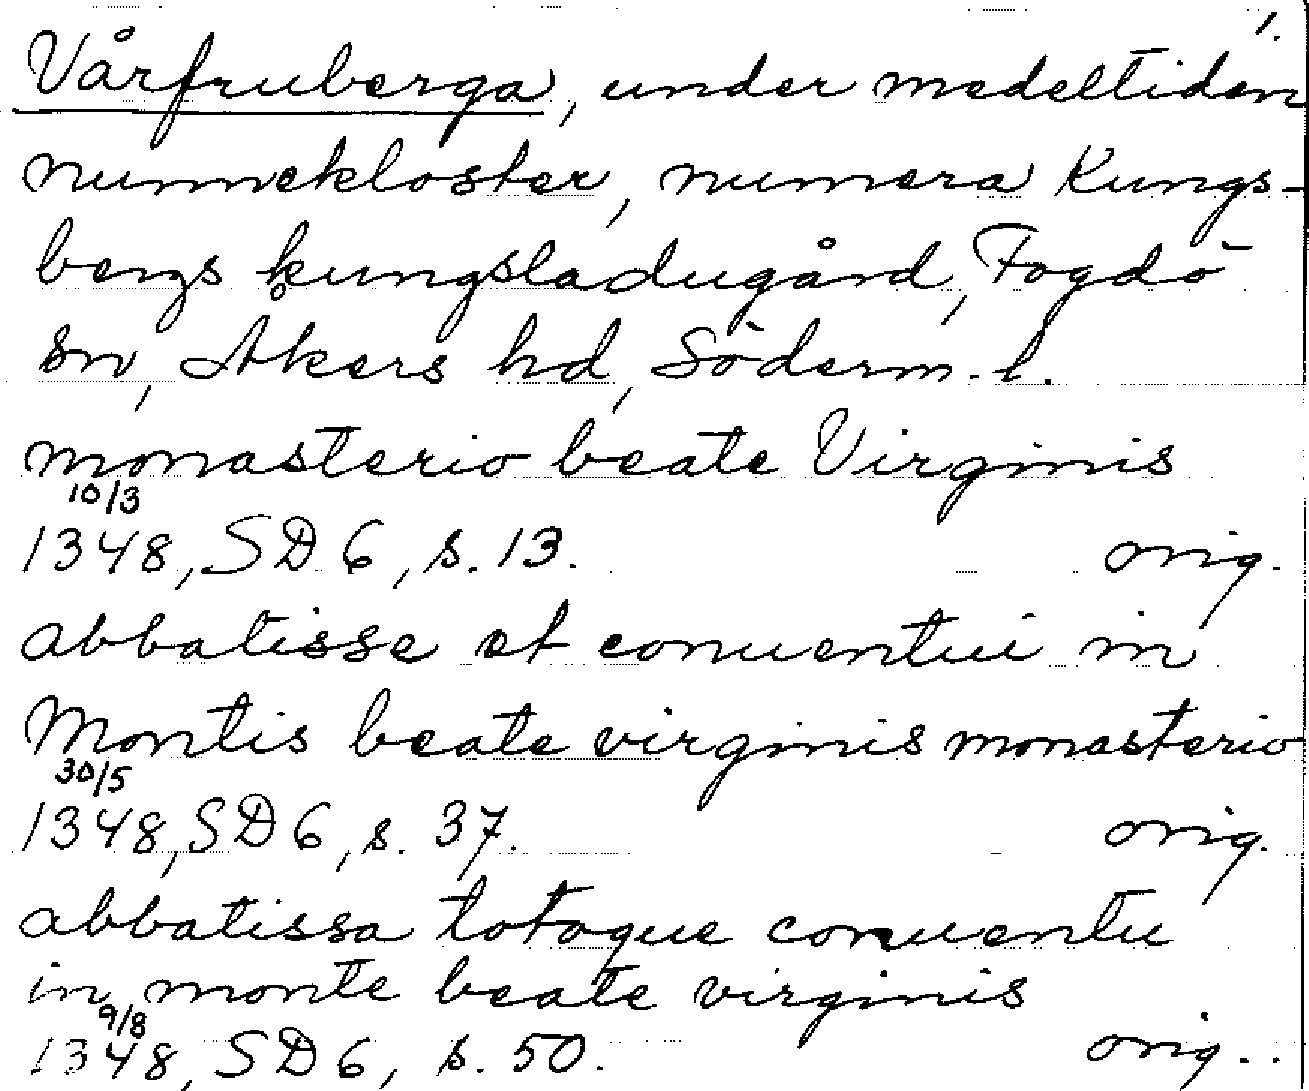 1.
Vårfruberga, under medeltiden
nunnekloster, numera Kungs-
bergs kungsladugård, Fogdö
sn, Åkers hd, Söderm. l.
monasterio beate Virginis
10/3
1348, SD 6, s. 13. orig.
abbatisse et conuentui in
Montis beate virginis monasterio
30/5
1348, SD 6, s. 37. orig.
abbatissa totoque conuentu
in monte beate virginis
9/8
1348, SD 6, s. 50. orig.